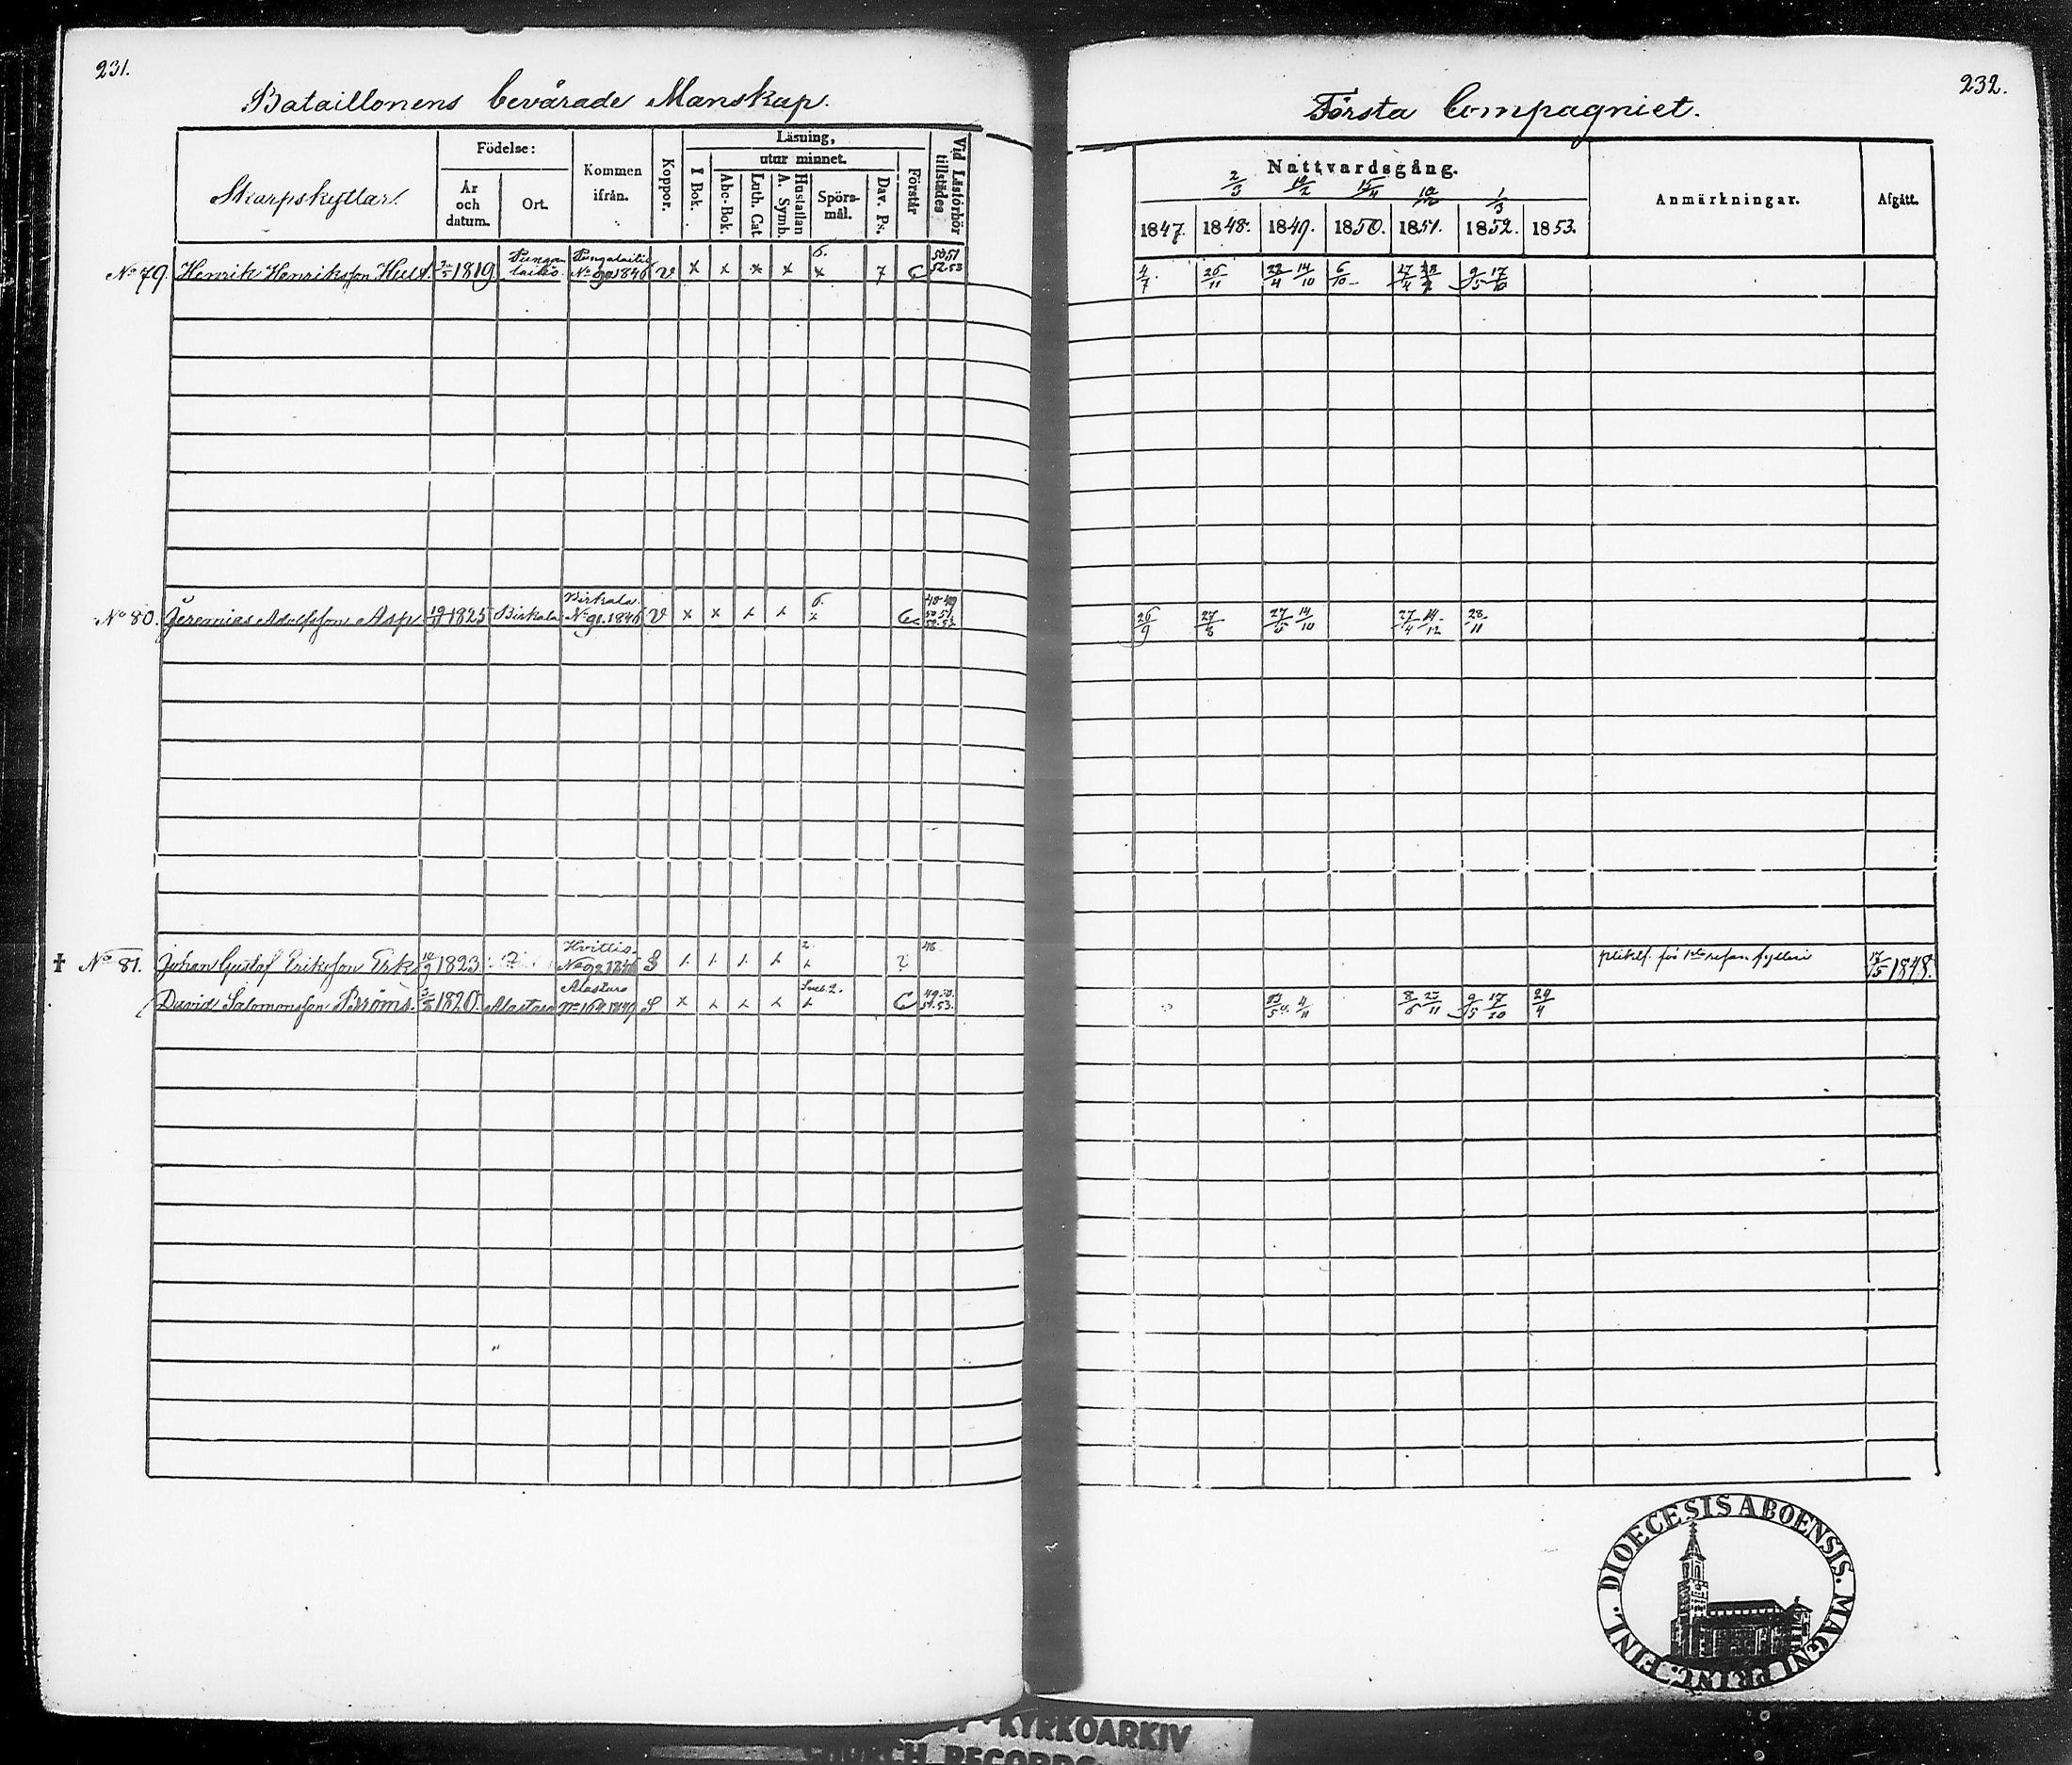 231.
Bataillonens bevärade Manskap.
Skarpskyttar.
Födelse:
År och datum.
Ort.
Kommen ifrån.
Koppor.
Läsning,
utur minnet.
I Bok.
Abc-Bok.
Luth. Cat.
A. Symb.
Hustaflan
Spörs-mål.
Dav. Ps.
Förstår
Vid Läsförhör tillstädes
No 79. Henrik Henriksson 1819 Pungalaitio 1846 V x x x x 6. x 7 50 51 52 53
No 80. Jeremias Adolfsson Asp 1825 Birkala Birkala No 91. 1846 V x x 6. 48 49
No 81. Johan Gustaf Eriksson Erk 1823 Hvittis 1846 S 2.
David Salomonsson 1820 Alastaro Alastaro 1849 S x 49. 50. 51. 53.
232.
Första Compagniet.
Nattvardsgång.
2/3 15/4 1/3
1847. 1848. 1849. 1850. 1851. 1852. 1853.
Anmärkningar.
Afgått.
4/7 26/11 22/4 14/10 6/10 27/4 9/5 17/10
26/9 27/8 27/5 14/10 27/4 14/12 28/11
17/5 1848.
4/11 8/6 25/11 9/5 17/10 24/4
DIOECESIS ABOENSIS. MAGNI PRINC. FINL.
KYRKOARKIV
CHURCH RECORDS